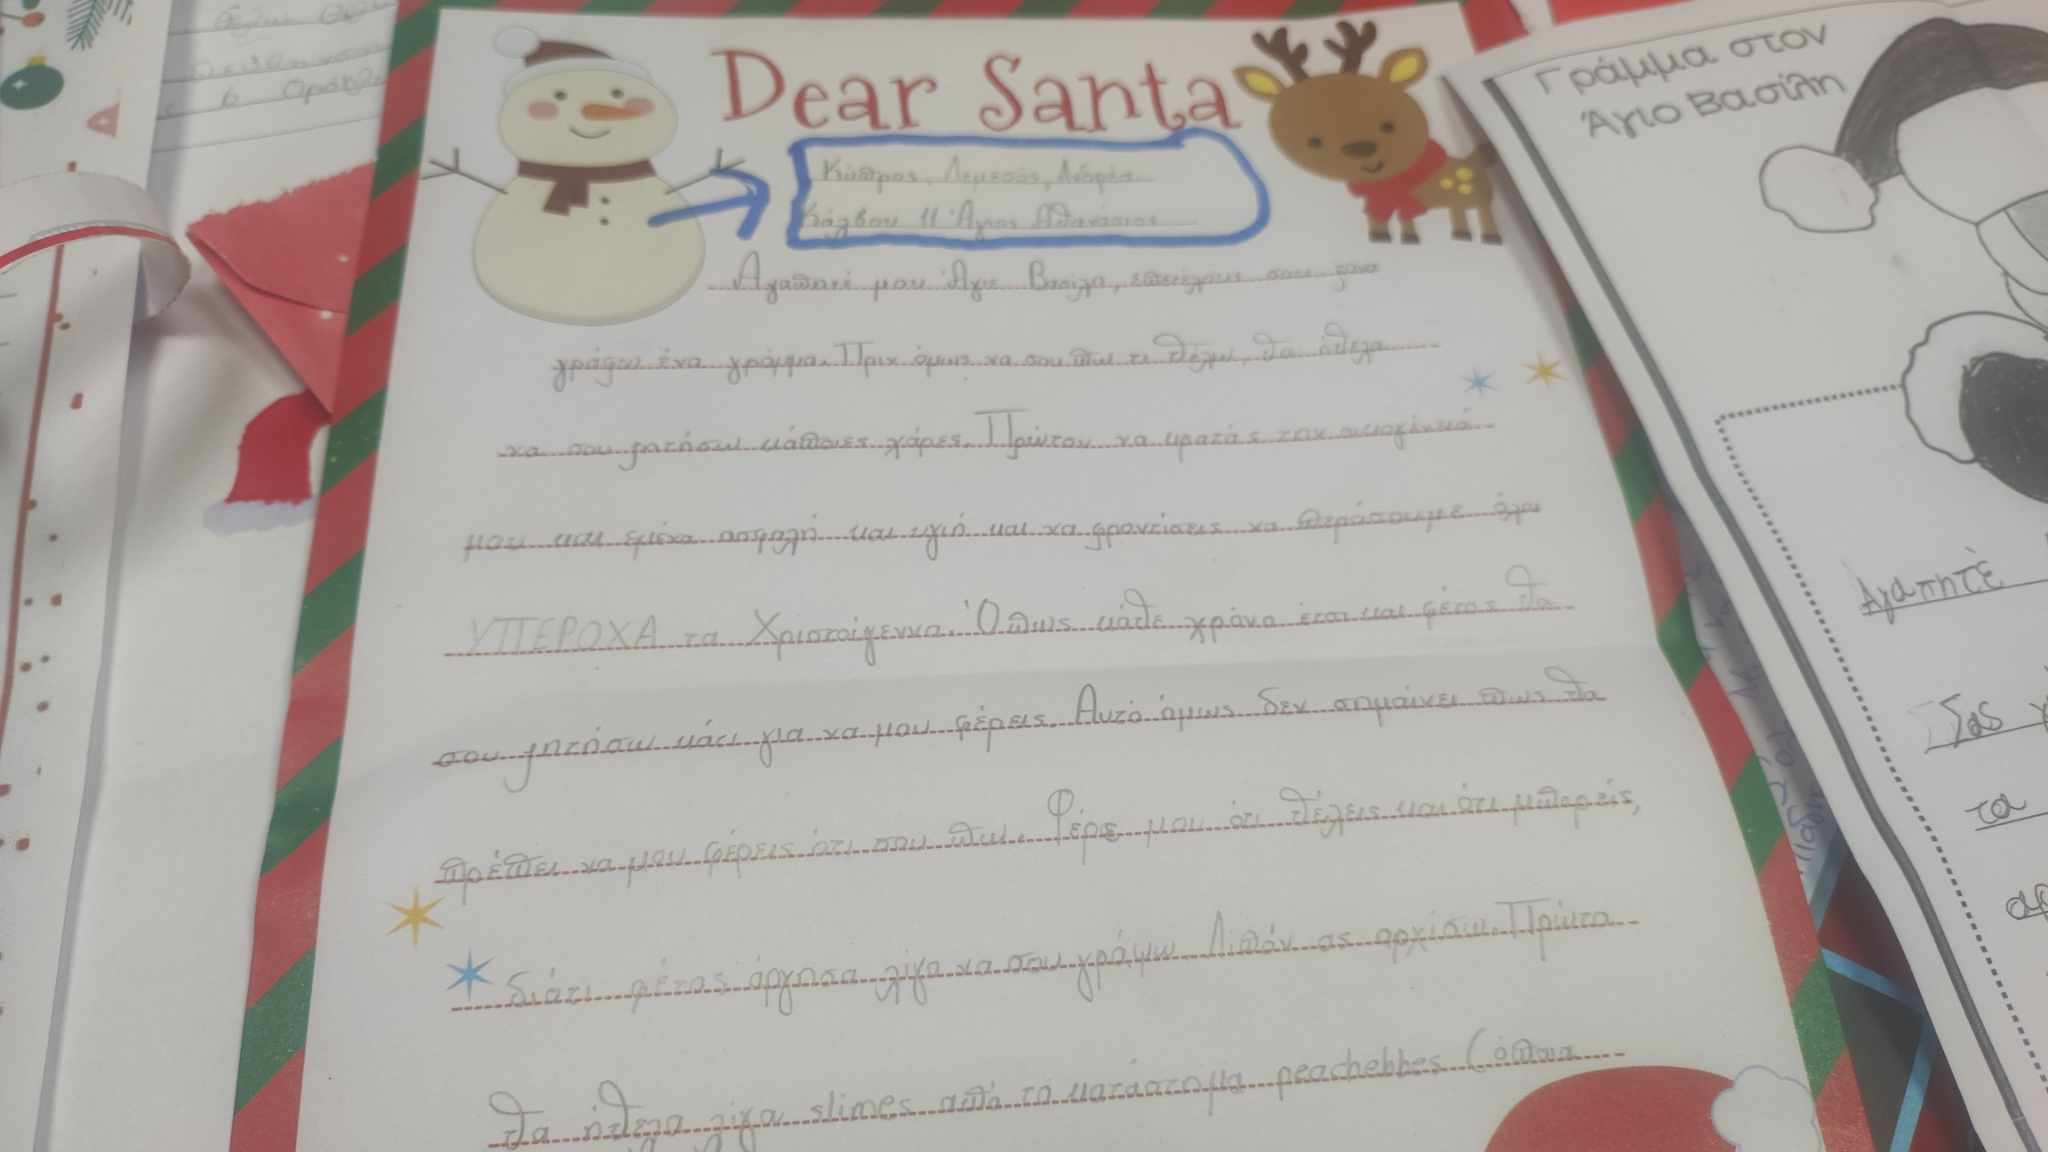 Γράμμα στον
Άγιο Βασίλη
Dear Santa
Κύπρος, Λεμεσός, Ανδρέα
Κάλβου 11 Άγιος Αθανάσιος
Αγαπητέ μου Άγιε Βασίλη, επιτέλους σου ξανα
γράφω ένα γράμμα. Πριν όμως να σου πω τι θέλω, θα ήθελα
να σου ζητήσω κάποιες χάρες. Πρώτον να κρατάς την οικογένειά
μου και εμένα ασφαλή και υγιή και να φροντίσεις να περάσουμε όλοι
ΥΠΕΡΟΧΑ τα Χριστούγεννα. Όπως κάθε χρόνο έτσι και φέτος θα
σου ζητήσω κάτι για να μου φέρεις. Αυτό όμως δεν σημαίνει πως θα
πρέπει να μου φέρεις ότι σου πω. Φέρε μου ότι θέλεις και ότι μπορείς,
διότι φέτος άργησα λίγο να σου γράψω. Λιπόν ας αρχίσω. Πρώτα
θα ήθελα λίγα slimes από το κατάστημα peachebbes (όποια
Αγαπητέ
Σας
τα